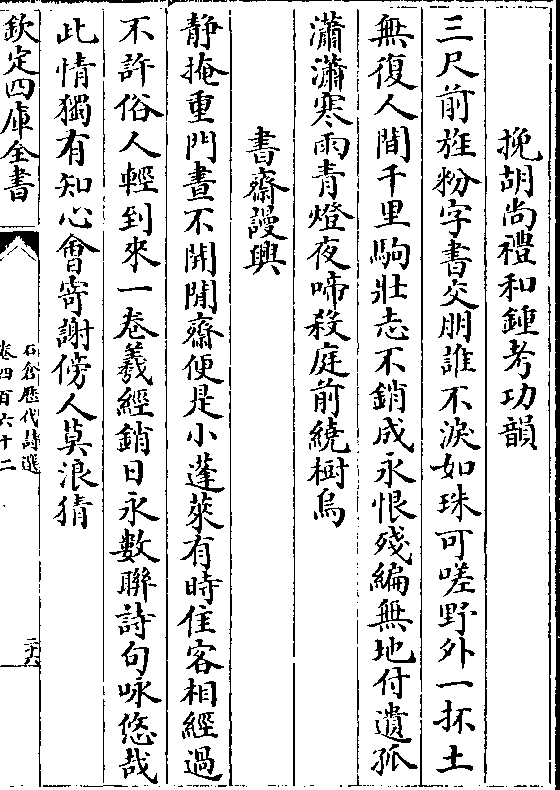 挽胡尚禮和鍾考功韻
三尺前旌粉字書交朋誰不淚如珠可嗟野外一抔土
無復人間千里駒壯志不銷成永恨殘編無地付遺孤
瀟瀟寒雨青燈夜啼殺庭前繞樹烏
書齋謾興
静掩重門晝不開閒齋便是小蓬萊有時佳客相經過
不許俗人輕到來一卷羲經銷日永數聯詩句咏悠哉
此情獨有知心會寄謝傍人莫浪猜
欽定四庫全書
石倉歷代詩選
卷四百六十二
二六